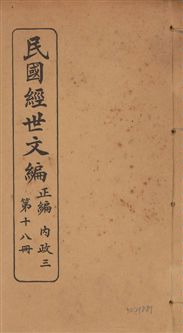 民國經世文編
正編 內政三
第十八冊